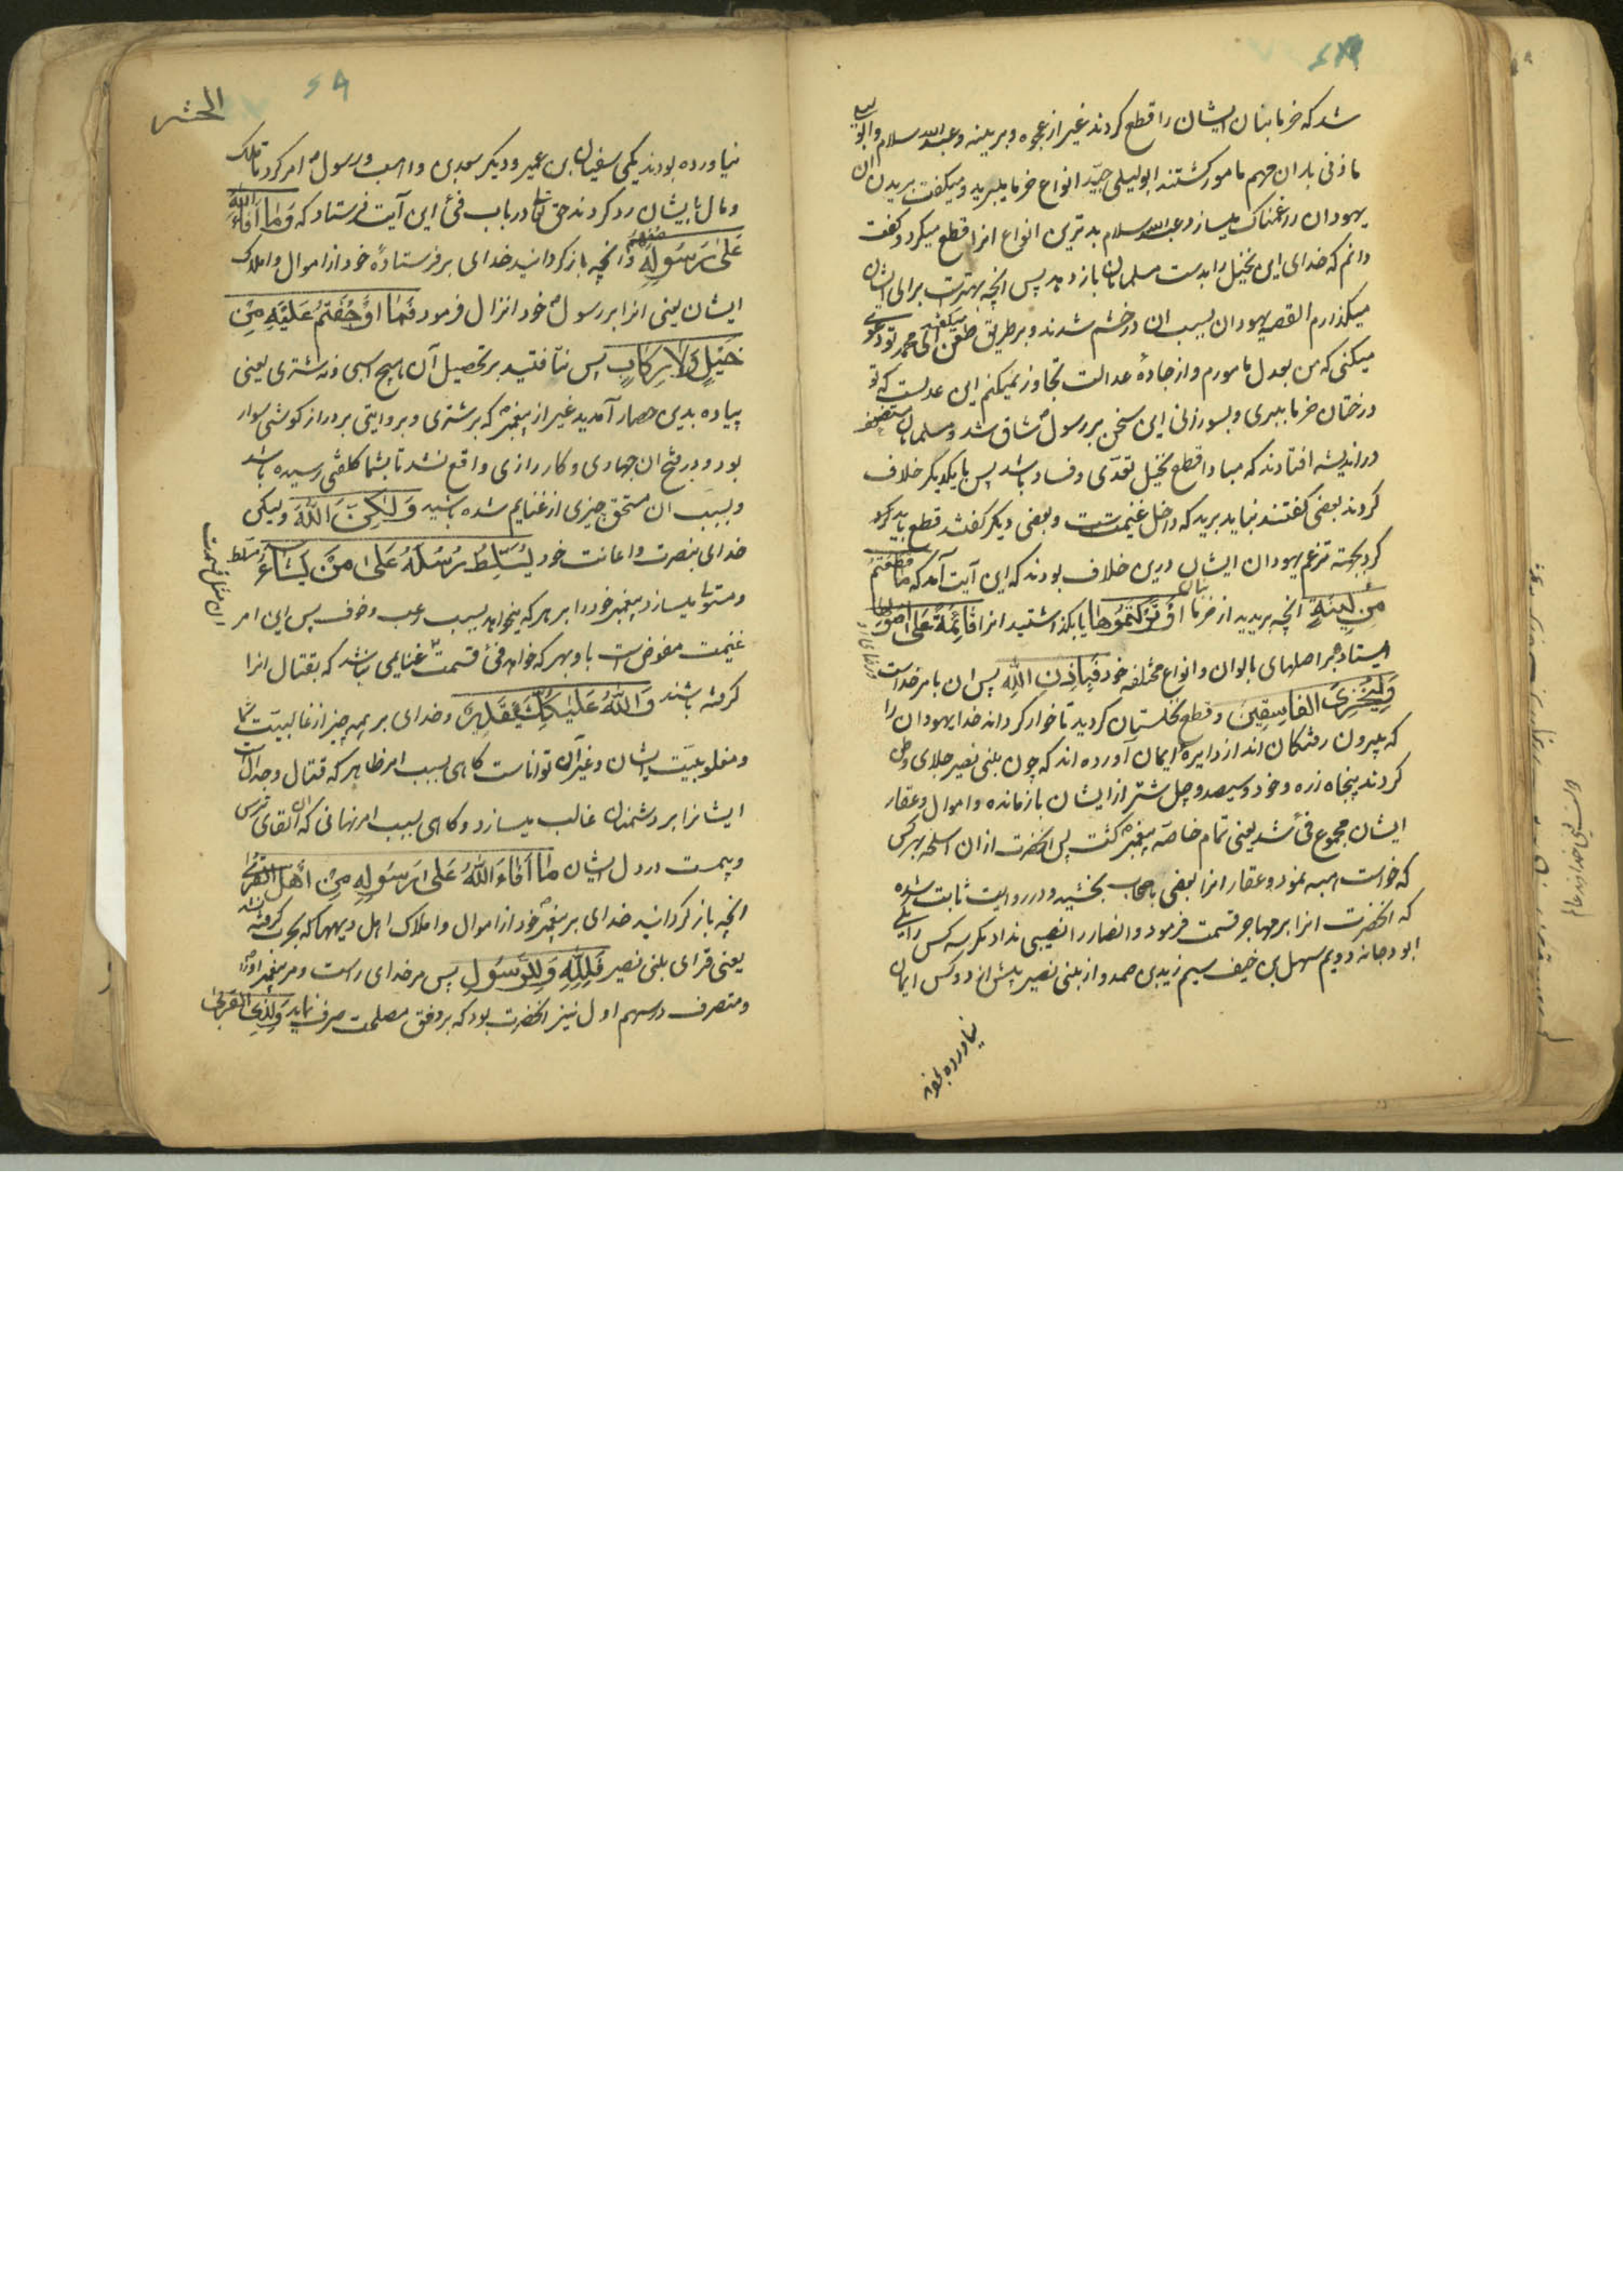 شد که خرما بنان ایشان را قطع کردند غیر از عجوه و برینه و عبدالله سلام و ابو لیلی
ماذنی باران مهم مامور کشتند ابولیلی جیّد انواع خرما میبرید و میکفت بریدن ان
یهودان را غمناک میسازد و عبدالله سلام بدترین انواع انرا قطع میکرد و کفت
دانم که خدای این نخیل را بدست مسلمانان باز دهد پس انچه بهترست برای ایشان
میکذارم القصه یهودان بسبب ان در خشم شدند و بر طریق طعن میکفتند ای محمد تو دعوی
میکنی که من بعدل مامورم و از جادهٔ عدالت تجاوز نمیکنم این عدلست که تو
درختان خرما ببری و بسوزانی این سخن بر رسول شاق شد و مسلمانان مستضعف
در اندیشه افتادند که مبادا قطع نخیل تعدّی و فساد باشد پس با یکدیکر خلاف
کردند بعضی کفتند نباید برید که داخل غنیمتست و بعضی دیکر کفتند قطع باید کرد
کرد بجهته ترغم یهودان ایشان درین خلاف بودند که این آیت آمد که مَا قَطَعْتُمْ
مِنْ لِینَةٍ انچه بریدید از خرما بنان اَوْ تَرَکْتُمُوهَا یا بکذاشتید انرا قَائِمَةً عَلیٰ اُصُولِهَا
ایستاده بر اصلهای بالوان و انواع مختلفه خود فَبِاِذْنِ اللهِ پس ان بامر خداست
وَلِیُخْزِیَ الفَاسِقِینَ و قطع نخلستان کردید تا خوار کرداند خدا یهودان را
که بیرون رفتکان اند از دایرهٔ ایمان آورده اند که چون بنی نصیر جلای وطن
کردند پنجاه زره و خود و سیصد و چل شتر از ایشان بازمانده و اموال و عقار
ایشان مجموع فیٔ شد یعنی تمام خاصّه پیغمبر کشت پس انحضرت از ان اسلحه بهر کس
که خواست هبه نمود و عقار انرا بعضی باصحاب بخشید و در روایت ثابت شده
که انحضرت انرا بر مهاجر قسمت فرمود و انصار را نصیبی نداد مکر سه کس را یکی
ابو دجانه دویم سهل بن حنیف سیم زیدبن صمه و از بنی نصیر بیش از دو کس ایمان
نیاورده بودند
الحشر
نیاورده بودند یکی سفیان بن عمیر و دیکر سعد بن واهب و رسول امر کرد تا ملک
و مال بایشان رد کردند حق تعالی در باب فیٔ این آیت فرستاد که وَمَا اَفَاءَ اللهُ
عَلیٰ رَسُولِهِ مِنْهُمْ و انچه باز کردانید خدای بر فرستادهٔ خود از اموال و املاک
ایشان یعنی انرا بر رسول خود انزال فرمود فَمَا اَوْجَفْتُمْ عَلَیْهِ مِنْ
خَیْلٍ وَلَا رِکَابٍ پس نتافتید بر تحصیل آن هیچ اسبی و نه شتری یعنی
پیاده بدین حصار آمدید غیر از پیغمبر که بر شتری و بروایتی بر دراز کوشی سوار
بود و در فتح ان جهادی و کارزاری واقع نشد تا بشما کلفتی رسیده باشد
و بسبب ان مستحق چیزی از غنایم شده باشید وَلٰکِنَّ اللهَ ولیکن
خدای بنصرت و اعانت خود یُسَلِّطُ رُسُلَهُ عَلیٰ مَنْ یَشَاءُ مسلط
و مستولی میسازد پیغمبر خود را بر هر که میخواهد بسبب رعب و خوف پس این امر
غنیمت مفوض است باو بهر که خواهد فیٔ قسمت غنایمی نباشد که بقتال انرا
کرفته باشند وَاللهُ عَلیٰ کُلِّ شَیْءٍ قَدِیرٌ و خدای بر همه چیز از غالبیّت شما
و مغلوبیّت ایشان و غیر آن تواناست کاهی بسبب امر ظاهر که قتال و جدال است
ایشانرا بر دشمنان غالب میسازد و کاهی بسبب امر نهانی که ان القای ترس
و بیمست در دل ایشان مَا اَفَاءَ اللهُ عَلیٰ رَسُولِهِ مِنْ اَهْلِ القُرَىٰ
انچه باز کردانید خدای بر پیغمبر خود از اموال و املاک اهل دیهها که بحرب کرفته نشد
یعنی قرای بنی نصیر فَلِلّٰهِ وَلِلرَّسُولِ پس مر خدای راست و مر پیغمبر او را
و متصرف در سهم اول نیز انحضرت بود که بر وفق مصلحت صرف نماید وَلِذِی القُرْبیٰ